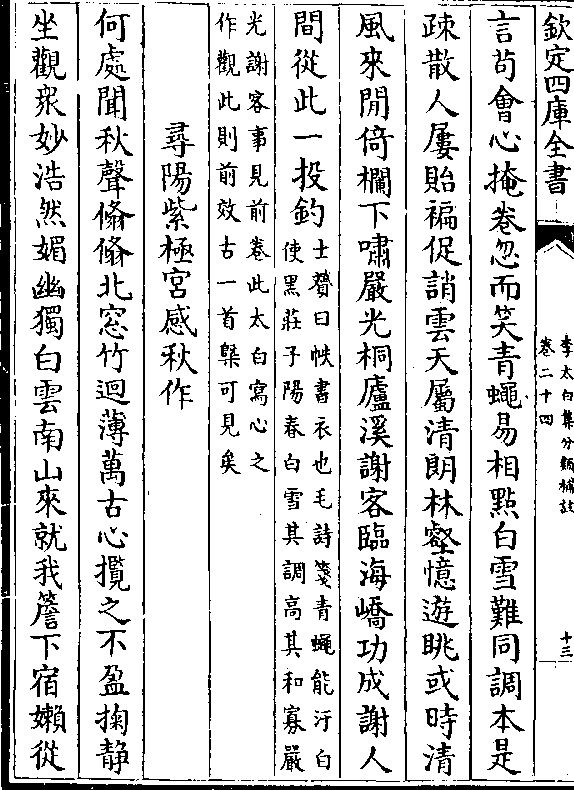 欽定四庫全書
李太白集分類補註
卷二十四
十三
言苟會心掩卷忽而笑青蠅易相點白雪難同調本是
疎散人屢貽褊促誚雲天屬清朗林壑憶遊眺或時清
風來閒倚欄下嘯嚴光桐廬溪謝客臨海嶠功成謝人
間從此一投釣
士贇曰帙書衣也毛詩箋青蠅能汙白
使黑莊子陽春白雪其調高其和寡嚴
光謝客事見前卷此太白寫心之
作觀此則前效古一首槩可見矣
尋陽紫極宮感秋作
何處聞秋聲翛翛北窓竹迴薄萬古心攬之不盈掬静
坐觀衆妙浩然媚幽獨白雲南山來就我簷下宿嬾從